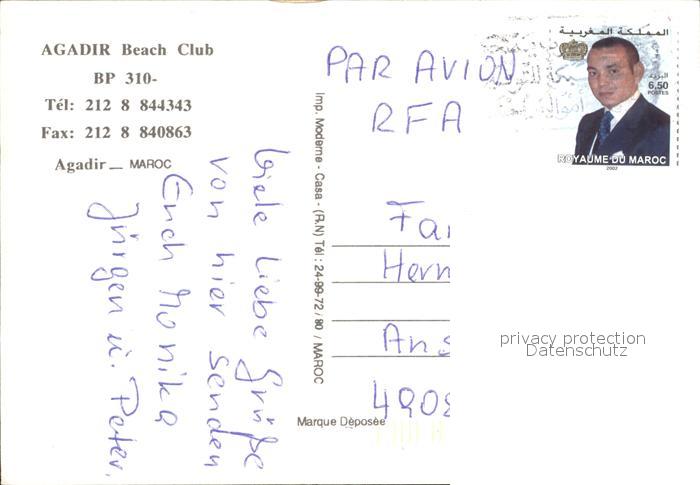 AGADIR Beach Club
BP 310-
Tél: 212 8 844343
Fax: 212 8 840863
Agadir _ MAROC
Viele liebe Grüße
von hier senden
Euch Monika
Jürgen u. Peter.
Imp. Moderne - Casa - (R.N) Tél : 24-99-72 / 80 / MAROC
Marque Déposée
PAR AVION
RFA
المملكة المغربية
البريد
6,50
POSTES
ROYAUME DU MAROC
2002
Fa
Hern
Ans
4908
privacy protection
Datenschutz